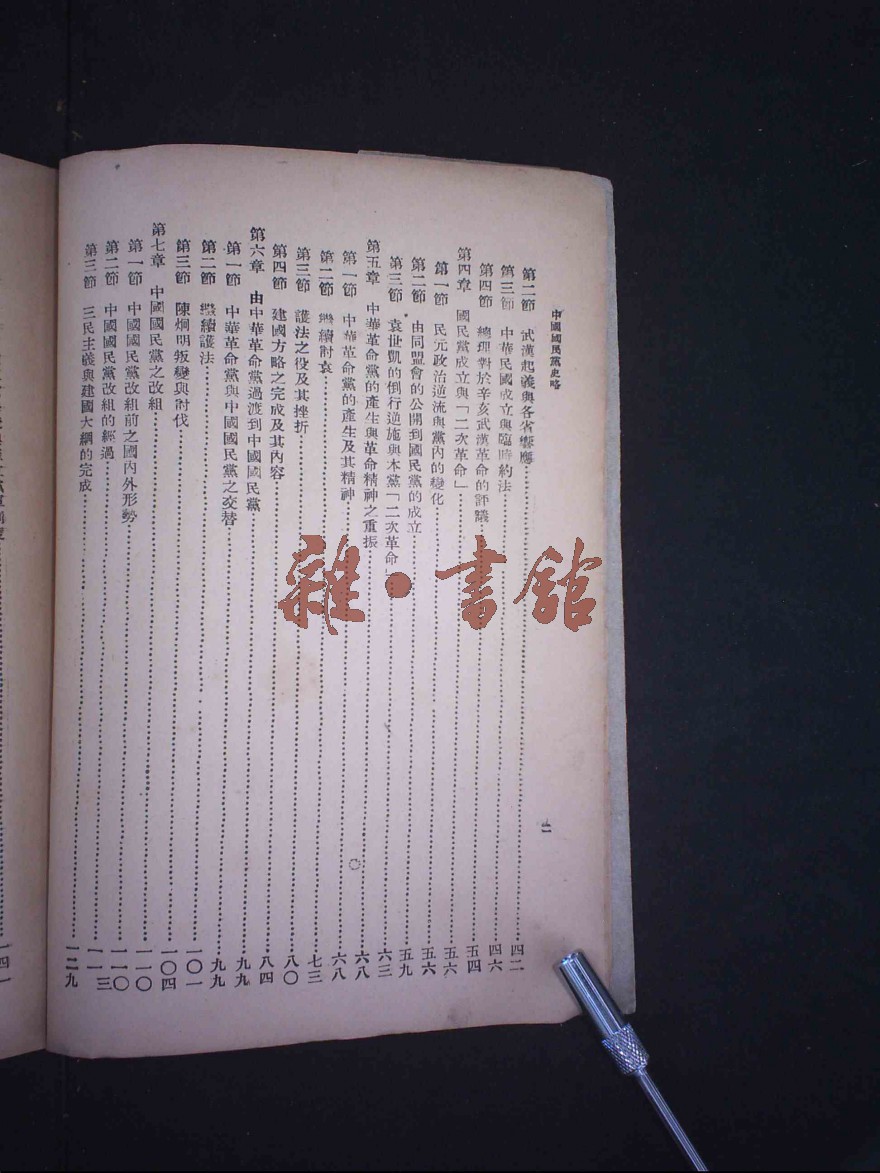 中國國民黨史略
二
第二節 武漢起義與各省響應 四二
第三節 中華民國成立與臨時約法 四六
第四節 總理對於辛亥武漢革命的評議 五四
第四章 國民黨成立與「二次革命」 五六
第一節 民元政治逆流與黨內的變化 五六
第二節 由同盟會的公開到國民黨的成立 五九
第三節 袁世凱的倒行逆施與本黨「二次革命」 六三
第五章 中華革命黨的產生與革命精神之重振 六八
第一節 中華革命黨的產生及其精神 六八
第二節 繼續討袁 七三
第三節 護法之役及其挫折 八〇
第四節 建國方略之完成及其內容 八四
第六章 由中華革命黨過渡到中國國民黨 九九
第一節 中華革命黨與中國國民黨之交替 九九
第二節 繼續護法 一〇一
第三節 陳炯明叛變與討伐 一〇四
第七章 中國國民黨之改組 一一〇
第一節 中國國民黨改組前之國內外形勢 一一〇
第二節 中國國民黨改組的經過 一一三
第三節 三民主義與建國大綱的完成 一二九
一四一
雜·書館